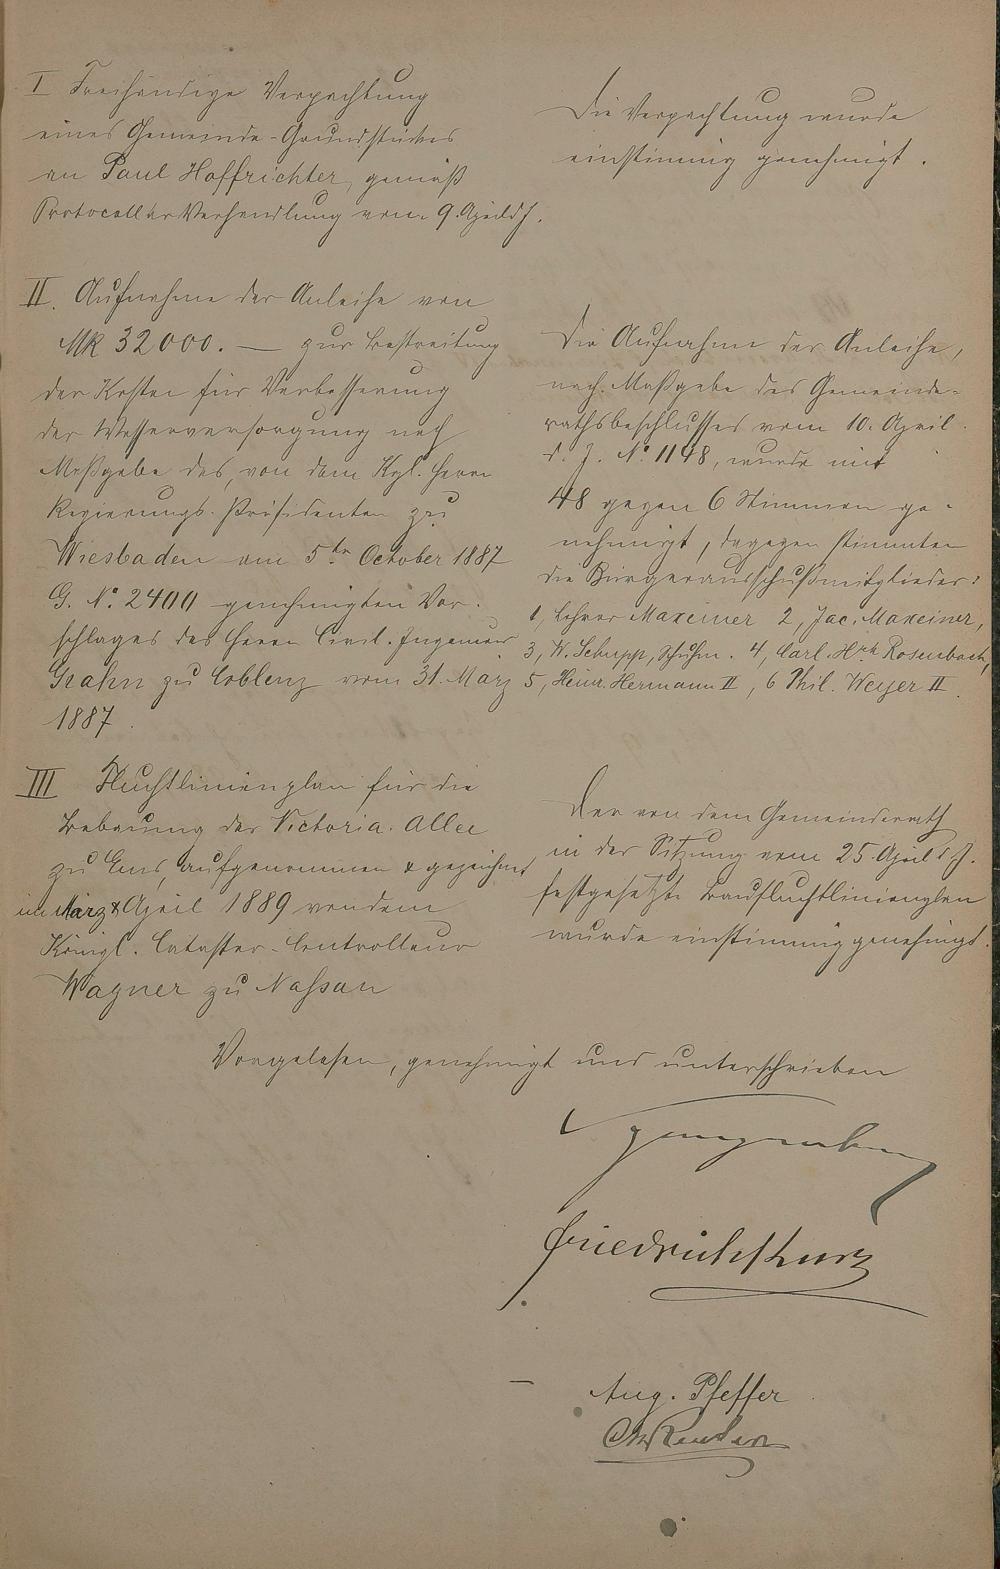 I Freihändige Verpachtung
eines Gemeinde-Grundstückes
an Paul Hoffrichter, gemäß
Protocollar Verhandlung vom 9. April d. J.
Die Verpachtung wurde
einstimmig genehmigt.
II. Aufnahme der Anleihe von
Mk 32000. — zur Bestreitung
der Kosten für Verbesserung
der Wasserversorgung nach
Maßgabe des, von dem Kgl. Herrn
Regierungs-Präsidenten zu
Wiesbaden am 5ten October 1887
G. No. 2400 genehmigten Vor-
schlages des Herrn Civil-Ingenieur
Grahn zu Coblenz vom 31. März
1887.
Die Aufnahme der Anleihe,
nach Maßgabe des Gemeinde-
rathsbeschlusses vom 10. April
d. J. No. 1148, wurde mit
48 gegen 6 Stimmen ge-
nehmigt, dagegen stimmten
die Bürgerausschußmitglieder:
1, Lehrer Maxeiner 2, Jac. Maxeiner,
3, W. Schupp, Schuhm. 4, Carl Hch Rosenbach,
5, Heinr. Hermann II, 6 Phil. Weyer II.
III Fluchtlinienplan für die
Bebauung der Victoria-Allee
zu Ems, aufgenommen & gezeichnet
im März & April 1889 von dem
Königl. Cataster-Controlleur
Wagner zu Nassau
Der von dem Gemeinderath
in der Sitzung vom 25. April d. J.
festgesetzte Baufluchtlinienplan
wurde einstimmig genehmigt.
Vorgelesen, genehmigt und unterschrieben
Friedrich Kurz
Aug. Pfeffer